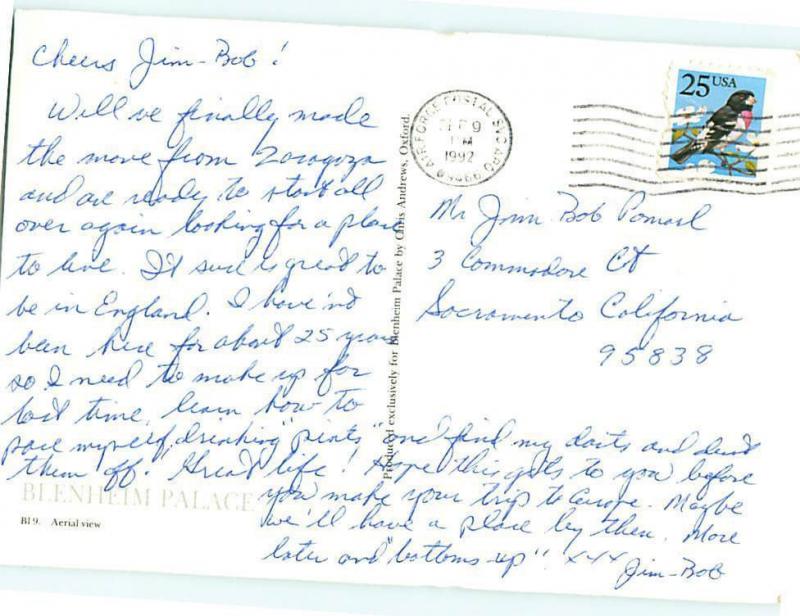 Cheers Jim-Bob!
Well ve finally made
the move from Zaragoza
and are ready to start all
over again looking for a place
to live. It sure is great to
be in England. I have'nt
been here for about 25 years
so I need to make up for
lost time, learn how to
pace myself, drinking "pints" and find my darts and dust
them off. Great life! Hope this gets to you before
you make your trip to Europe. Maybe
we'll have a place by then. More
later and "bottoms-up"! xxx
Jim-Bob
BLENHEIM PALACE
BI 9. Aerial view
Produced exclusively for Blenheim Palace by Chris Andrews, Oxford.
AIR FORCE POSTAL SVC APO
9
PM
1992
25 USA
Mr Jim Bob
3 Commodore Ct
Sacramento California
95838